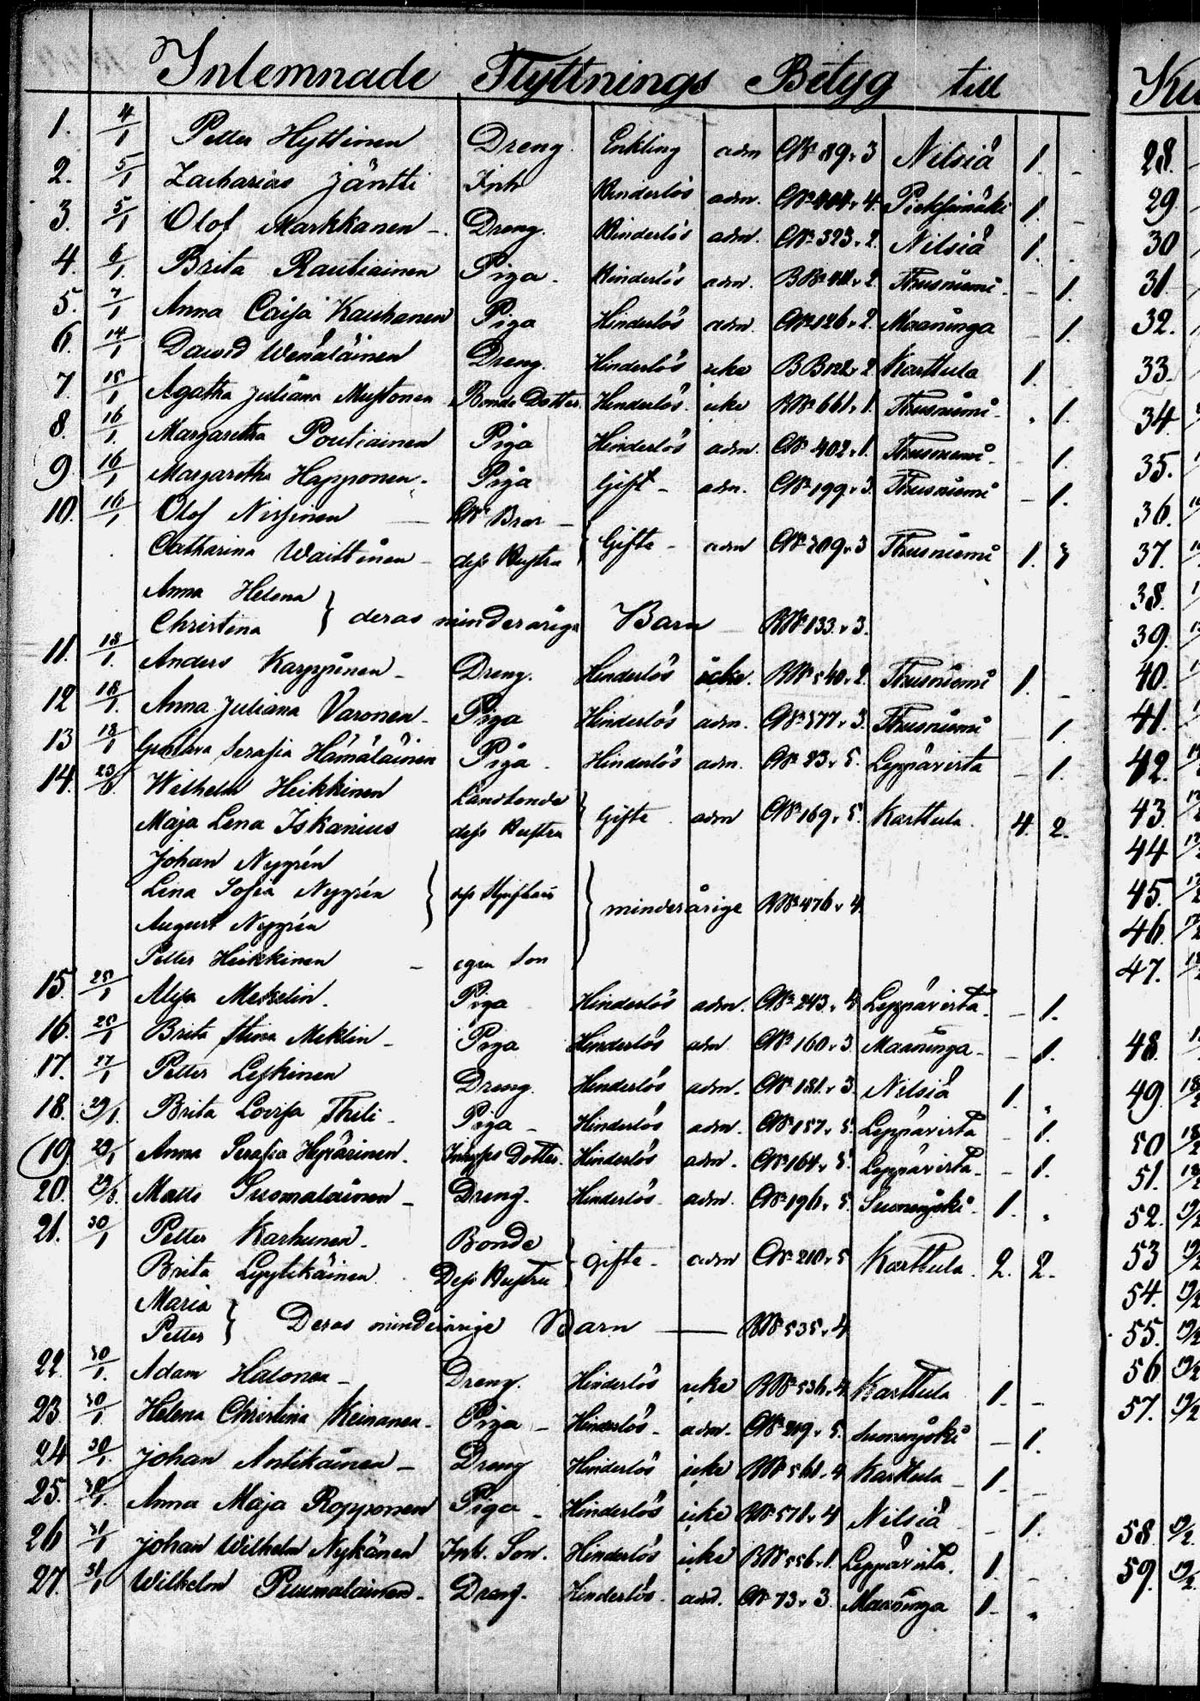 Inlemnade Flyttnings Betyg till
1. 4/1 Petter Hyttinen Dreng. Enkling adm CN: 89 v 3 Nilsiä 1. -
2. 5/1 Zacharias Jäntti Inh Hinderlös adm. v. 4. Pieksämäki 1. -
3. 5/1 Olof Markkanen - Dreng. Hinderlös adm. CN: 323 v. 2. Nilsiä 1. -
4. 6/1 Brita Rautiainen Piga. Hinderlös adm. Thusniemi - 1.
5. 7/1 Anna Caisa Kauhanen Piga Hinderlös adm. CN: 126 v. 2. Maaninga - 1.
6. 14/1 David Wenäläinen Dreng. Hinderlös icke BB 122 v. 2 Karttula 1.
7. 15/1 Agatha Juliana Mustonen Bonde Dotter. Hinderlös. icke BN: 661 v. 1. Thusniemi. 1.
8. 16/1. Margaretha Poutiainen Piga Hinderlös adm. CN: 402 v. 1. Thusniemi. 1.
9. 16/1 Margaretha Happonen. Piga Gift - adm. CN: 199 v 3. Thusniemi - 1.
10. 16/1 Olof Nissinen
Catharina Waittinen dess Hustru } Gifte - adm CN: 209 v 3 Thusniemi 1. 3
Anna Helena
Christina } deras minderårige Barn BN: 133 v. 3.
11. 18/1. Anders Karppinen - Dreng. Hinderlös icke. BN: 540 v. 2. Thusniemi 1. -
12 18/1. Anna Juliana Varonen. Piga Hinderlös adm. CN: 377 v. 3. Thusniemi 1.
13 18/1 Gustava Serafia Hämäläinen Piga. Hinderlös adm. CN: 23 v. 5. Leppävirta - 1.
14. Wilhelm Heikkinen Landbonde
Maja Lena Iskanius dess Hustru } Gifte adm CN: 169 v. 5. Karttula. 4. 2.
Johan Nygrén
Lina Sofia Nygrén } minderårige BN: 476 v 4.
August Nygrén
Petter Heikkinen - egen Son
15. 25/1 Alisa Mekelin. Piga Hinderlös adm. CN: 243 v 4 Leppävirta. - 1.
16. 25/1 Brita Stina Meklin - Piga Hinderlös adm CN: 160 v 3 Maaninga - - 1.
17. 27/1 Petter Leskinen Dreng. Hinderlös adm. CN: 181 v 3. Nilsiä 1.
18. 29/1. Brita Lovisa Thili. Piga - Hinderlös adm. CN: 157 v 5. Leppävirta - 1.
19. 29/1 Anna Serafia Hyvärinen. Dotter. Hinderlös adm. CN: 164 v 5. Leppävirta. - 1.
20. Matts Suomalainen - Dreng. Hinderlös. adm. CN: 196 v. 5. Suonenjoki. 1.
21. 30/1 Petter Karhunen. Bonde
Brita Lyytikäinen. Dess Hustru } gifte - adm CN: 210 v 5 Karttula. 2. 2.
Maria
Petter } Deras minderårige Barn — BN: 535 v 4
22. 30/1. Adam Halonen - Dreng. Hinderlös icke BN: 536 v. 4. Karttula 1. -
23 30/1. Helena Christina Keinänen. Piga - Hinderlös - adm. CN: 219 v 5. Suonenjoki - 1.
24 30/1. Johan Antikainen - Dreng Hinderlös icke BN: 561 v. 4 Karttula 1. -
25. Anna Maja Ropponen Piga - Hinderlös icke BN: 571 v. 4 Nilsiä - 1.
26 31/1 Johan Wilhelm Nykänen Inh. Son. Hinderlös icke BN: 556 v 1. Leppävirta. 1. -
27. 31/1 Wilhelm Puumalainen. Dreng. Hinderlös. adm. CN: 73 v 3. Maaninga 1.
28.
29.
30
31.
32.
33.
34.
35.
36.
37.
38.
39.
40.
41.
42.
43.
44
45.
46.
47.
48.
49.
50.
51.
52.
53
54.
55.
56
57.
58.
59.